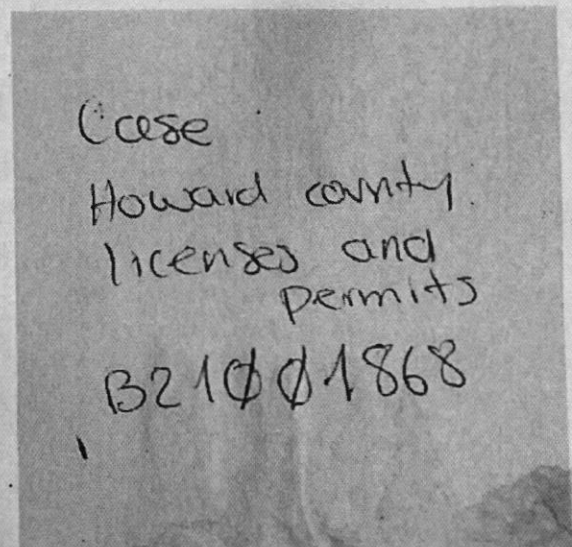 Case
Howard county.
licenses and
permits
B21001868